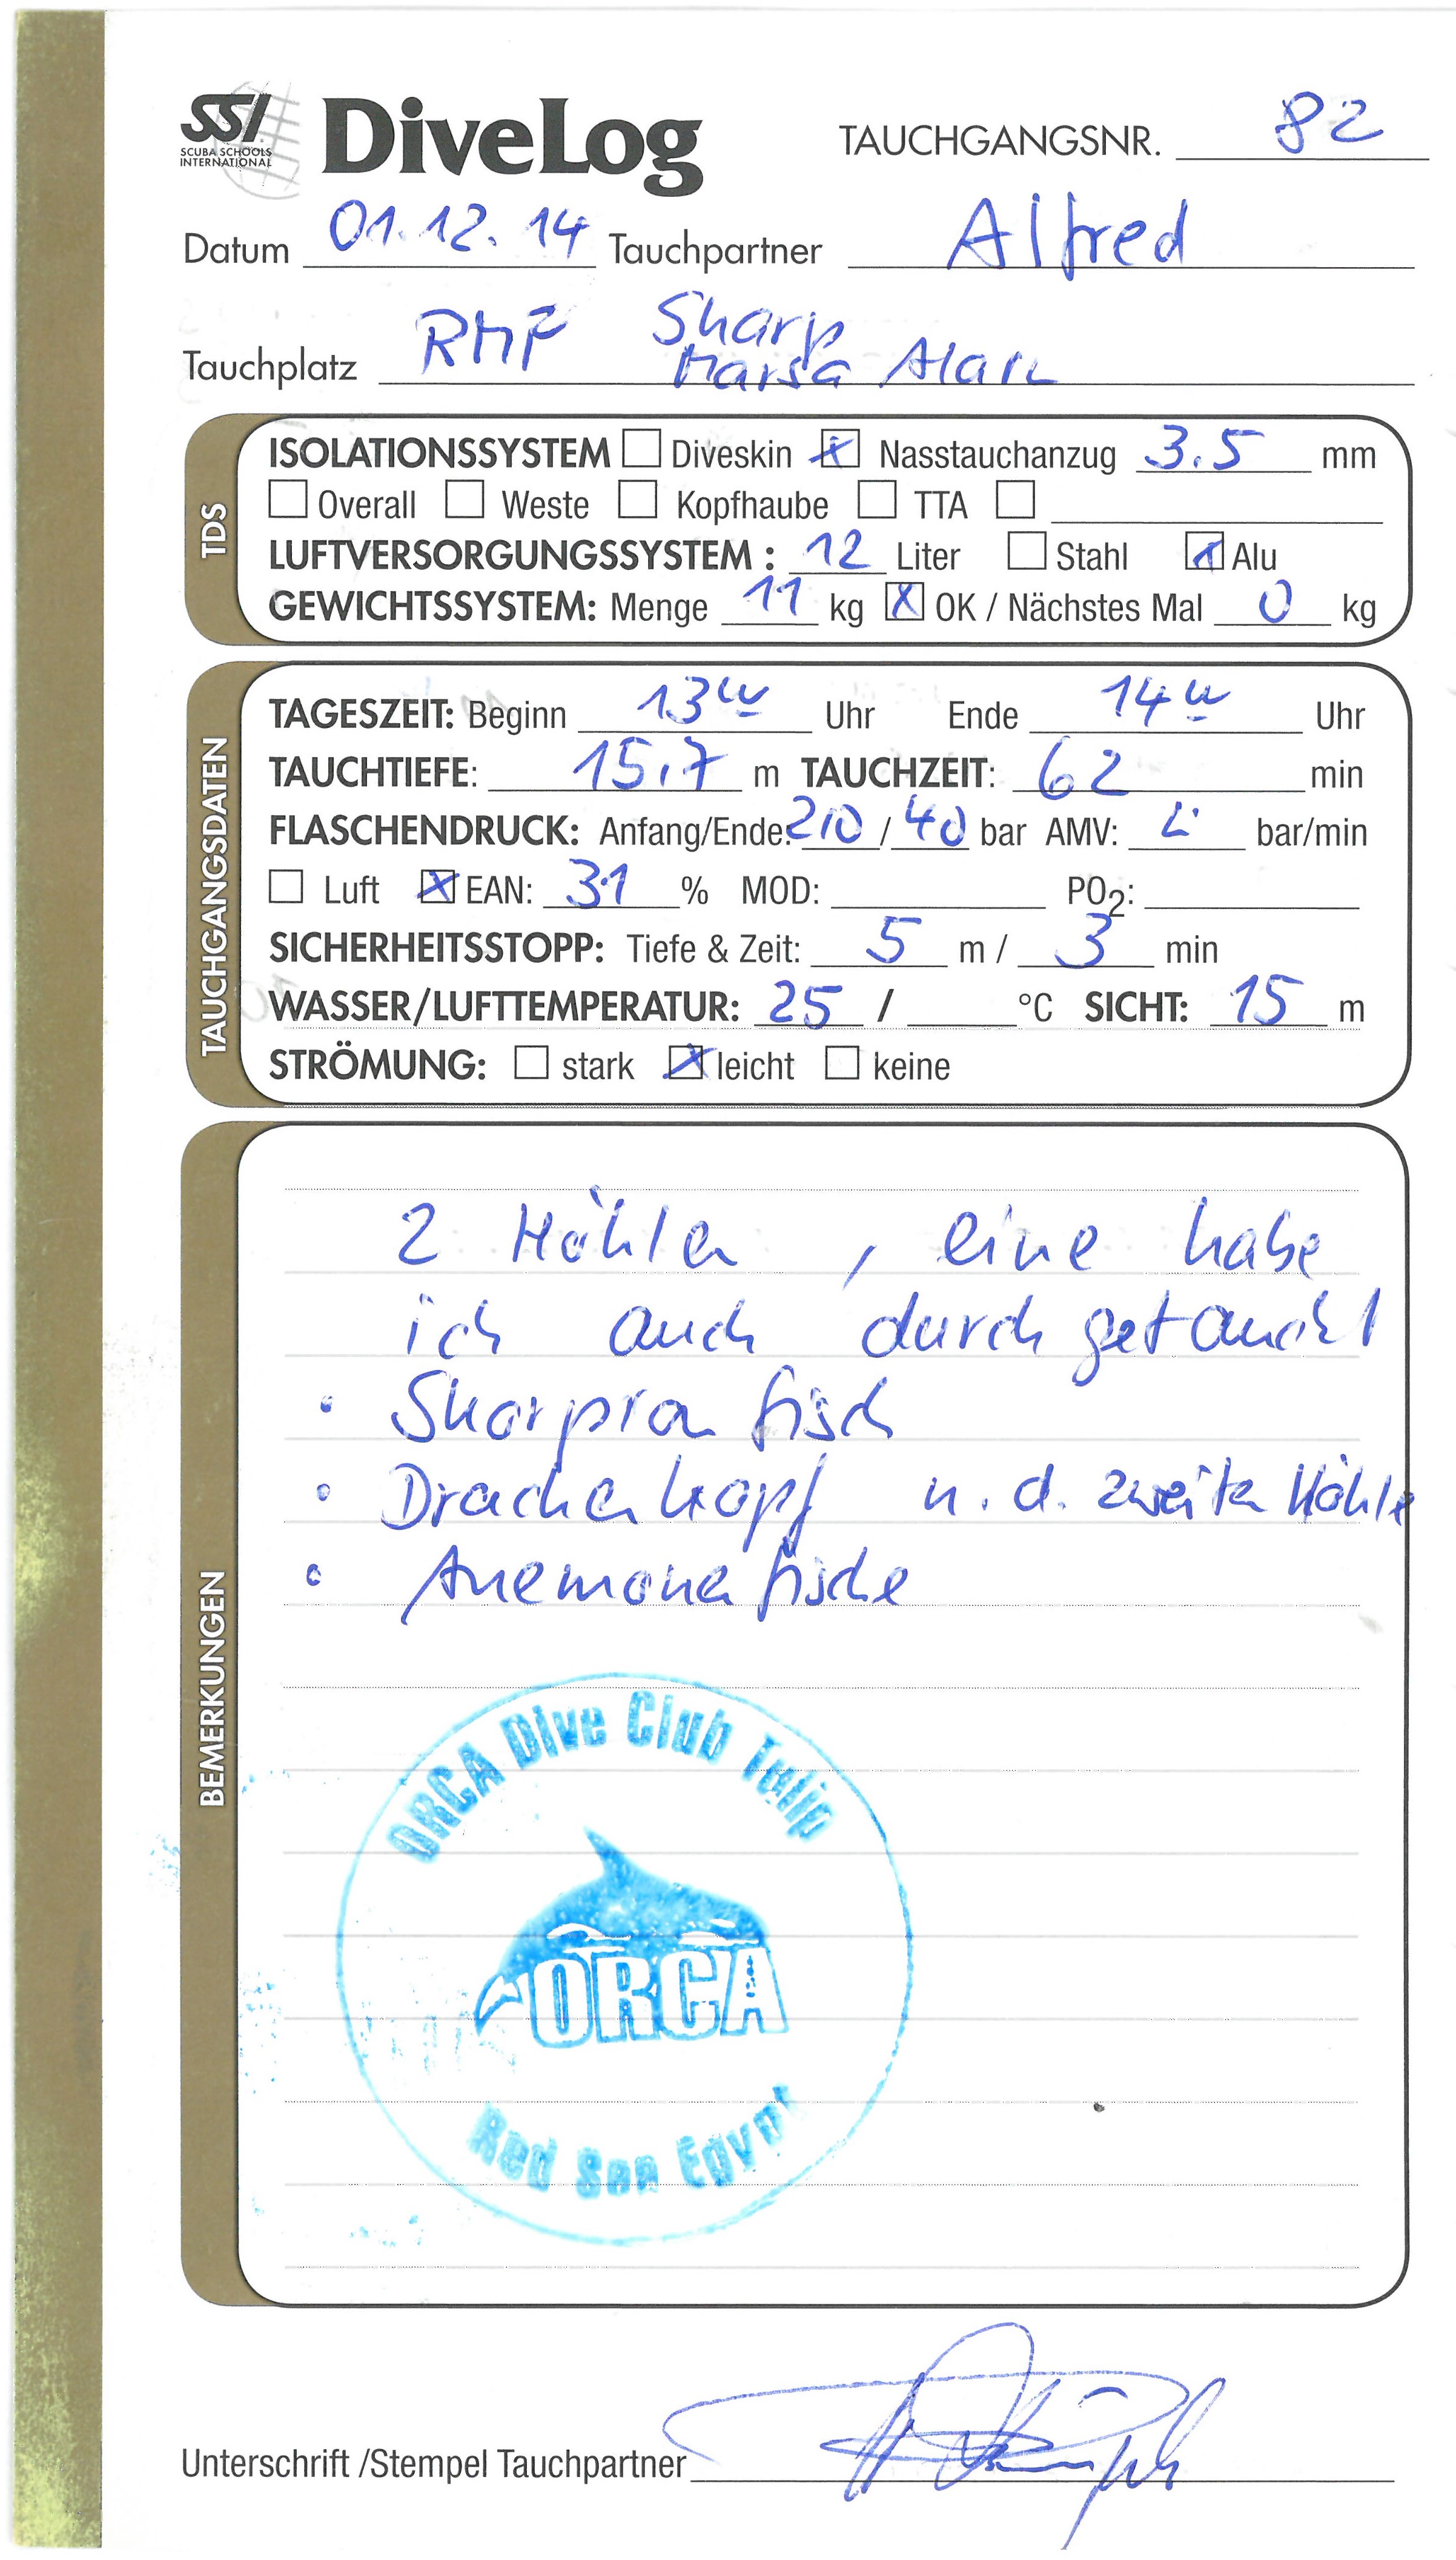 SSI DiveLog TAUCHGANGSNR. 82
SCUBA SCHOOLS
INTERNATIONAL
Datum 01.12.14 Tauchpartner Alfred
Tauchplatz RMF Sharp
Marsa Alam
TDS
ISOLATIONSSYSTEM Diveskin x Nasstauchanzug 3.5 mm
Overall Weste Kopfhaube TTA
LUFTVERSORGUNGSSYSTEM : 12 Liter Stahl x Alu
GEWICHTSSYSTEM: Menge 11 kg x OK / Nächstes Mal 0 kg
TAUCHGANGSDATEN
TAGESZEIT: Beginn 13 Uhr Ende 14 Uhr
TAUCHTIEFE: 15,7 m TAUCHZEIT: 62 min
FLASCHENDRUCK: Anfang/Ende: 210 / 40 bar AMV: bar/min
Luft x EAN: 31 % MOD: PO2:
SICHERHEITSSTOPP: Tiefe & Zeit: 5 m / 3 min
WASSER/LUFTTEMPERATUR: 25 / °C SICHT: 15 m
STRÖMUNG: stark x leicht keine
BEMERKUNGEN
2 Höhlen, eine habe
ich auch durchgetaucht
• Skorpionfisch
• Drachenkopf n. d. zweiten Höhle
• Anemonenfische
ORCA Dive Club Tulip
ORCA
Red Sea Egypt
Unterschrift /Stempel Tauchpartner